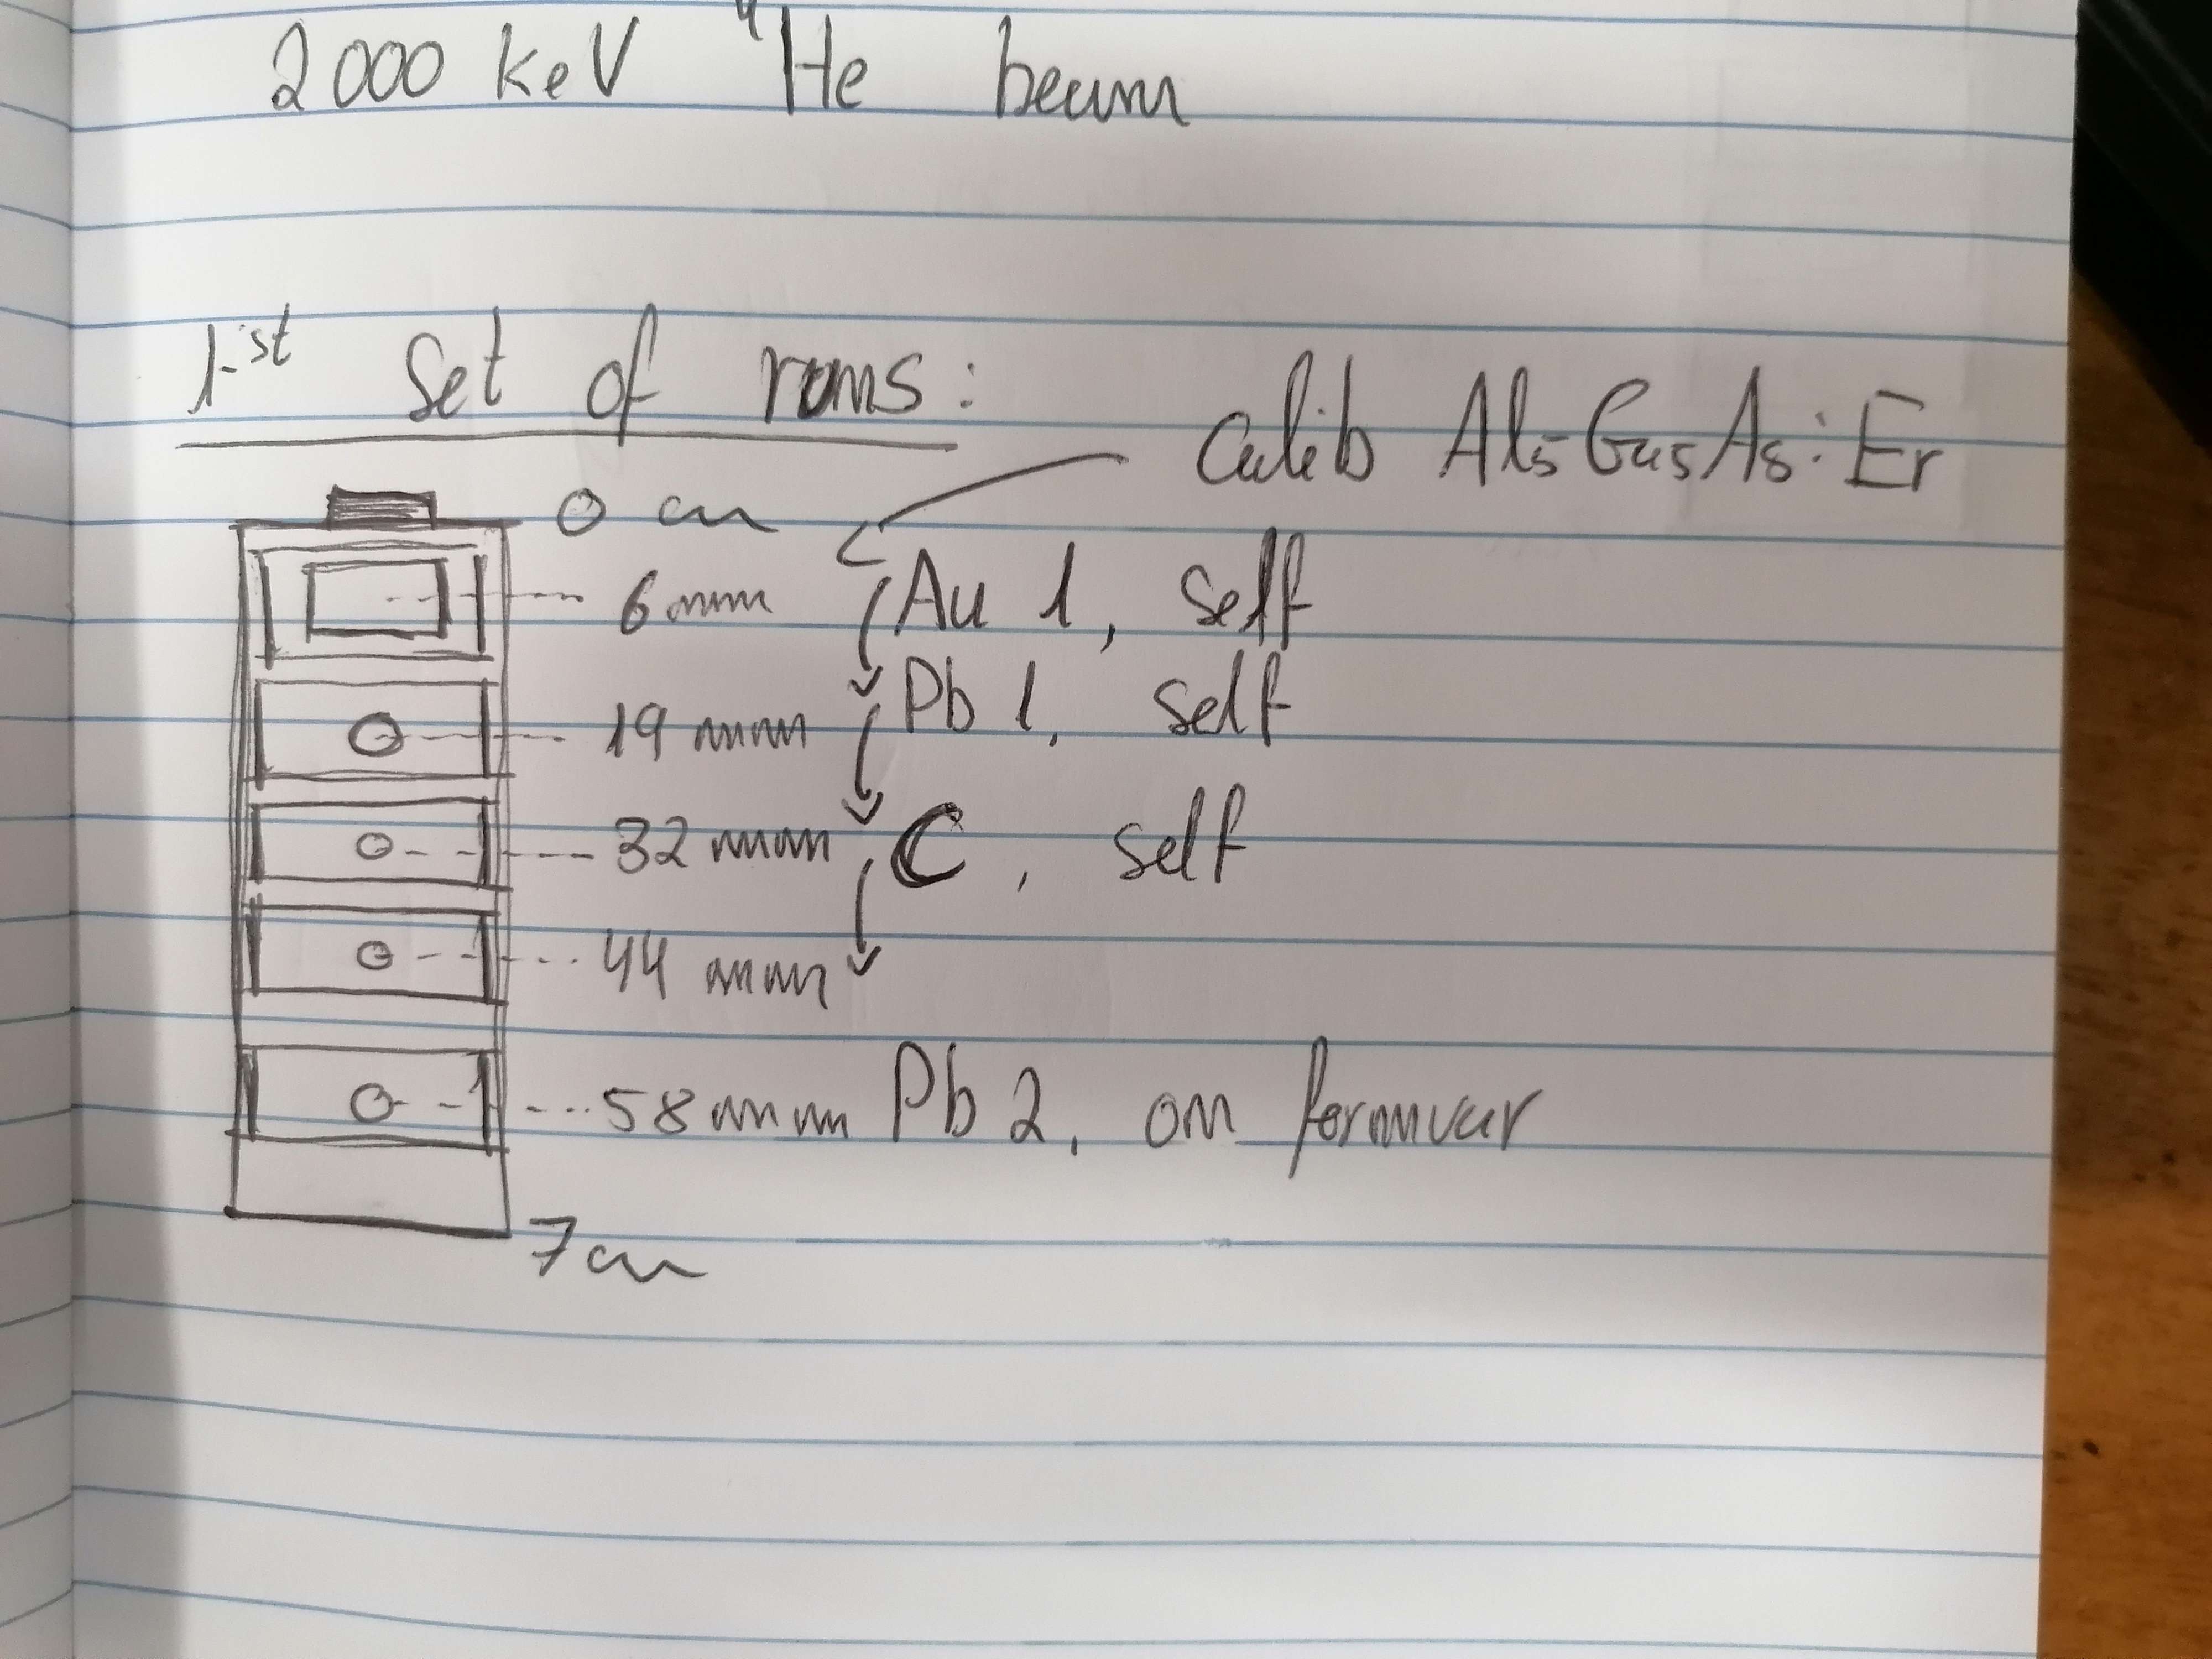 2000 keV ⁴He beam
1-st set of runs:
Calib Al5Ga5As:Er
0 cm
6 mm Au 1, self
19 mm Pb 1, self
32 mm C, self
44 mm
58 mm Pb 2, on formvar
7 cm